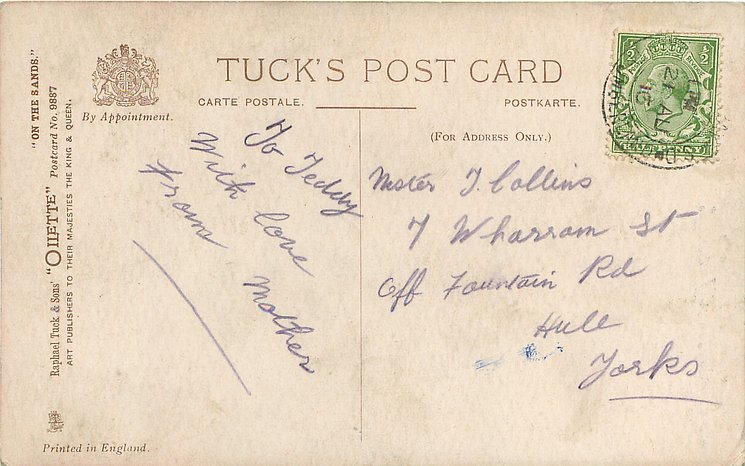 "ON THE SANDS."
Raphael Tuck & Sons' "OILETTE" Postcard No. 9887
ART PUBLISHERS TO THEIR MAJESTIES THE KING & QUEEN.
By Appointment.
TUCK'S POST CARD
CARTE POSTALE.
POSTKARTE.
(FOR ADDRESS ONLY.)
To Teddy
With love
From Mother
Master T. Collins
7 Wharram St
Off Fountain Rd
Hull
Yorks
½ ½
HALFPENNY
21 AU
Printed in England.